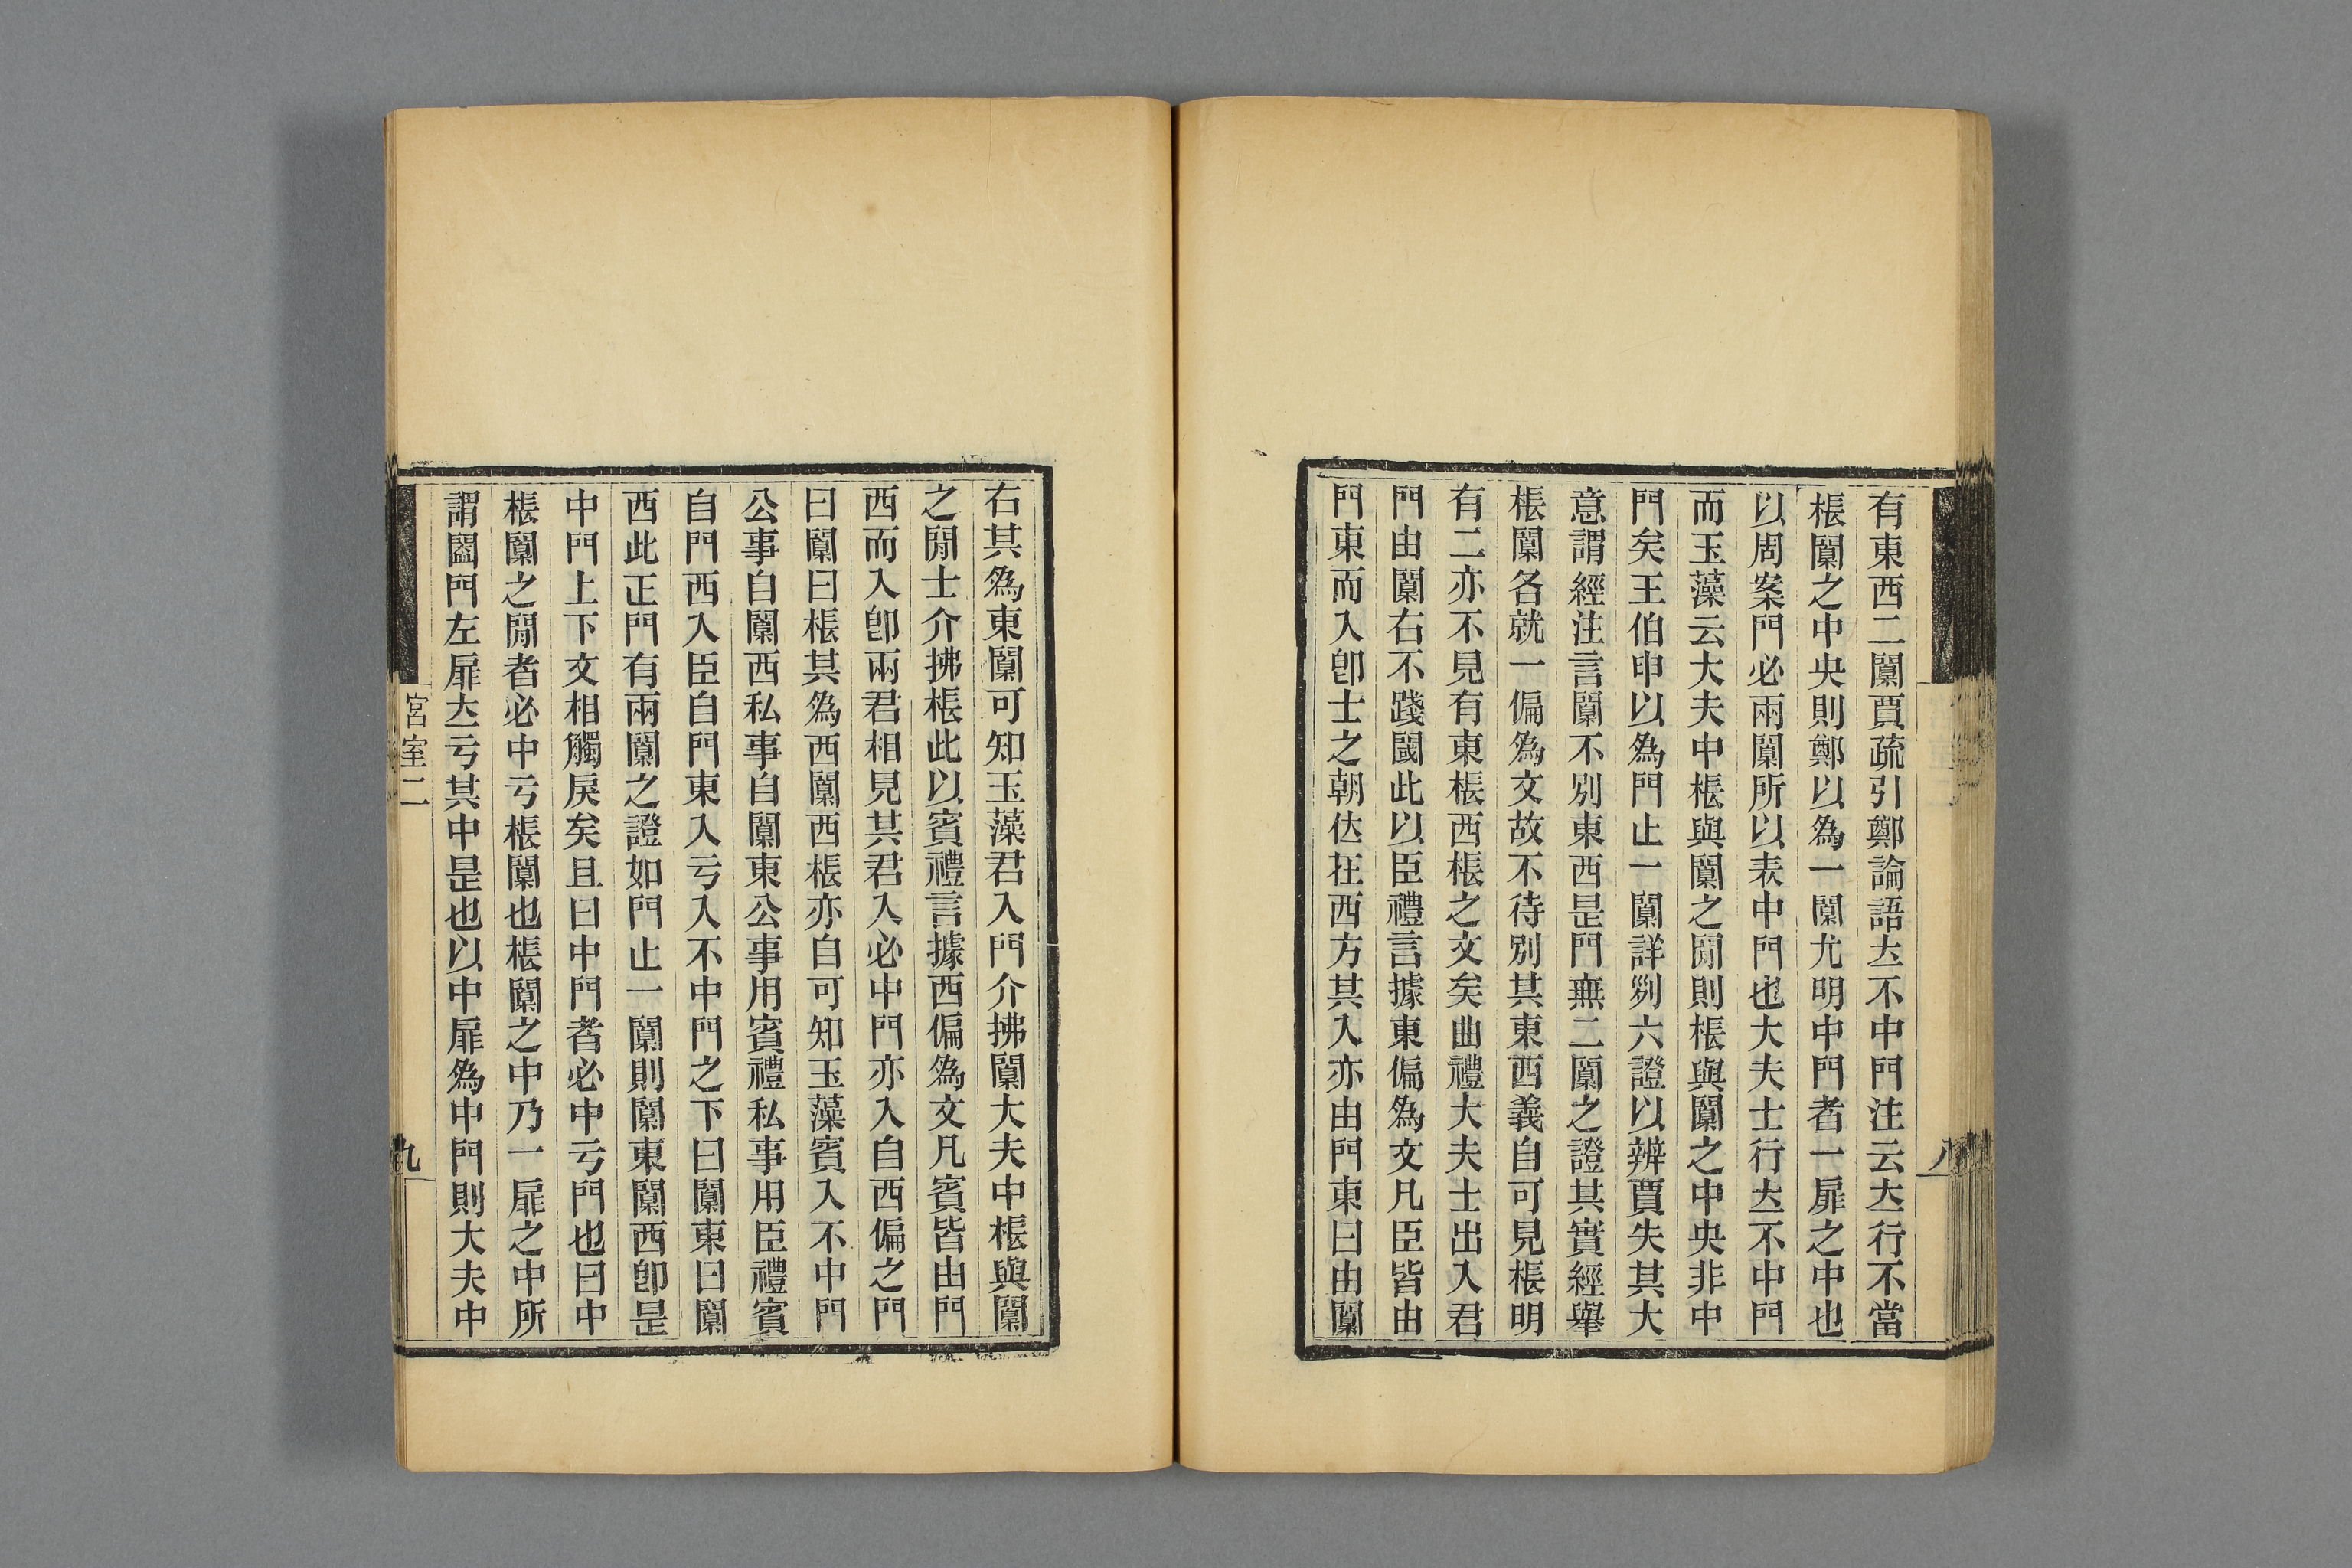 有東西二闑賈疏引鄭論語𠫓不中門注云𠫓行不當
棖闑之中央則鄭以爲一闑尤明中門者一扉之中也
以周案門必兩闑所以表中門也大夫士行𠫓不中門
而玉藻云大夫中棖與闑之閒則棖與闑之中央非中
門矣王伯申以爲門止一闑詳列六證以辨賈失其大
意謂經注言闑不別東西是門無二闑之證其實經舉
棖闑各就一偏爲文故不待別其東西義自可見棖明
有二亦不見有東棖西棖之文矣曲禮大夫士出入君
門由闑右不踐閾此以臣禮言據東偏爲文凡臣皆由
門東而入卽士之朝位在西方其入亦由門東曰由闑
右其爲東闑可知玉藻君入門介拂闑大夫中棖與闑
之閒士介拂棖此以賓禮言據西偏爲文凡賓皆由門
西而入卽兩君相見其君入必中門亦入自西偏之門
曰闑曰棖其爲西闑西棖亦自可知玉藻賓入不中門
公事自闑西私事自闑東公事用賓禮私事用臣禮賓
自門西入臣自門東入亏入不中門之下曰闑東曰闑
西此正門有兩闑之證如門止一闑則闑東闑西卽是
中門上下文相觸戾矣且曰中門者必中亏門也曰中
棖闑之閒者必中亏棖闑也棖闑之中乃一扉之中所
謂闔門左扉𠫓亏其中是也以中扉爲中門則大夫中
宮室二
九
八